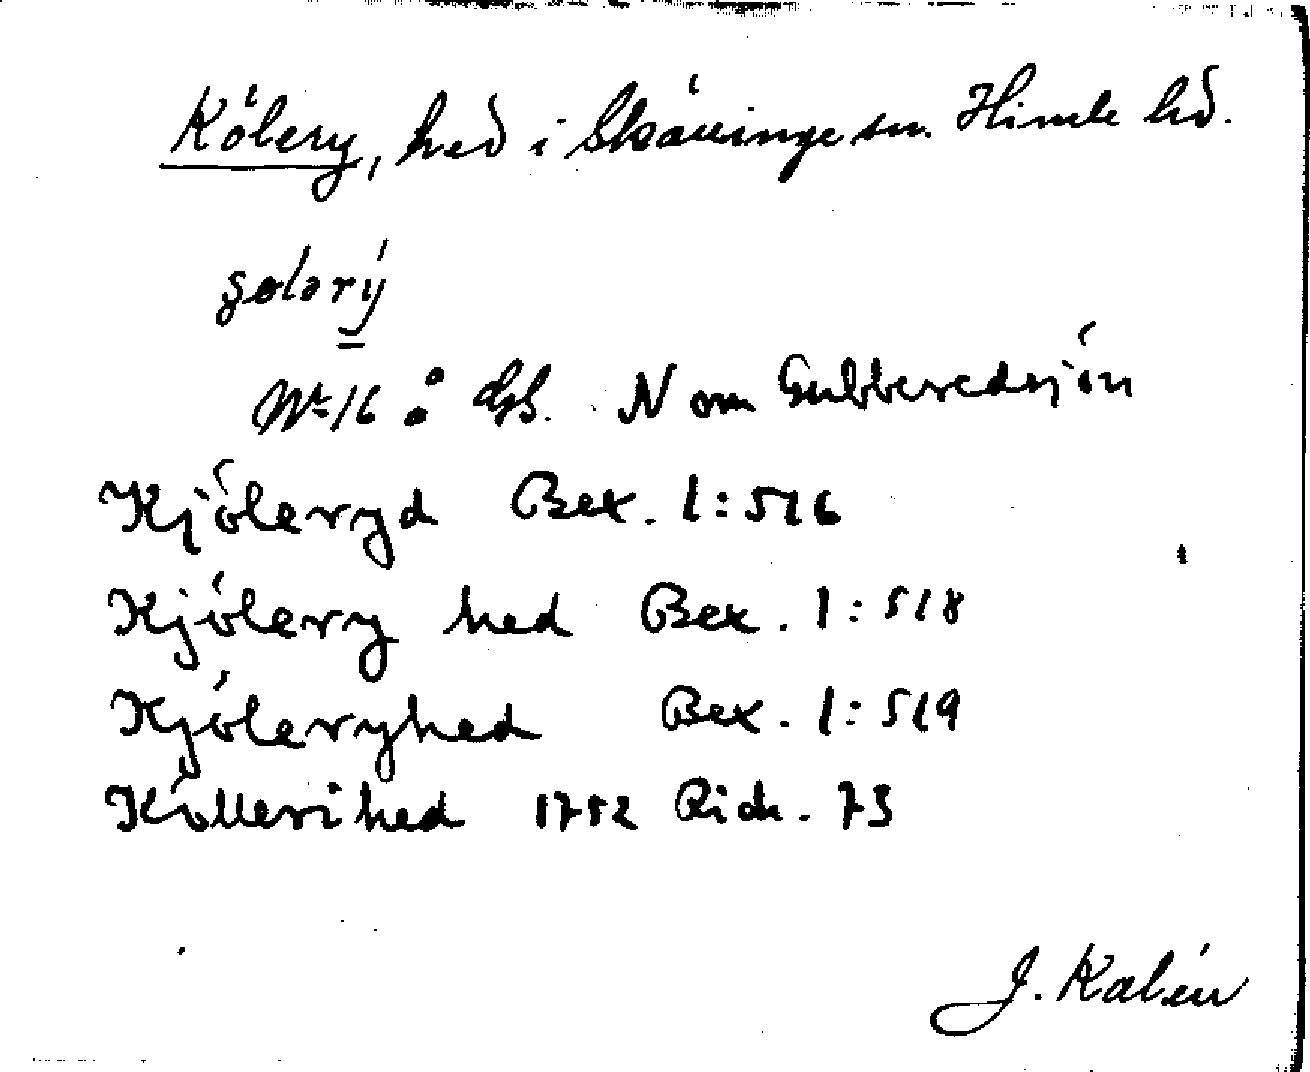 Kölery, hed i Skällinge sn. Himle hd.
Nr 16 N om Gubberedsjön
Kjöleryd Bex. 1:516
Kjölery hed Bex. 1:518
Kjöleryhed Bex. 1:519
Köllerihed 1752 Rich. 73
J. Kalén